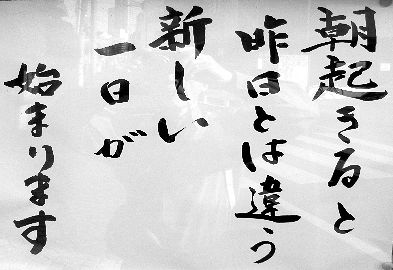 朝起きると
昨日とは違う
新しい
一日が
始まります